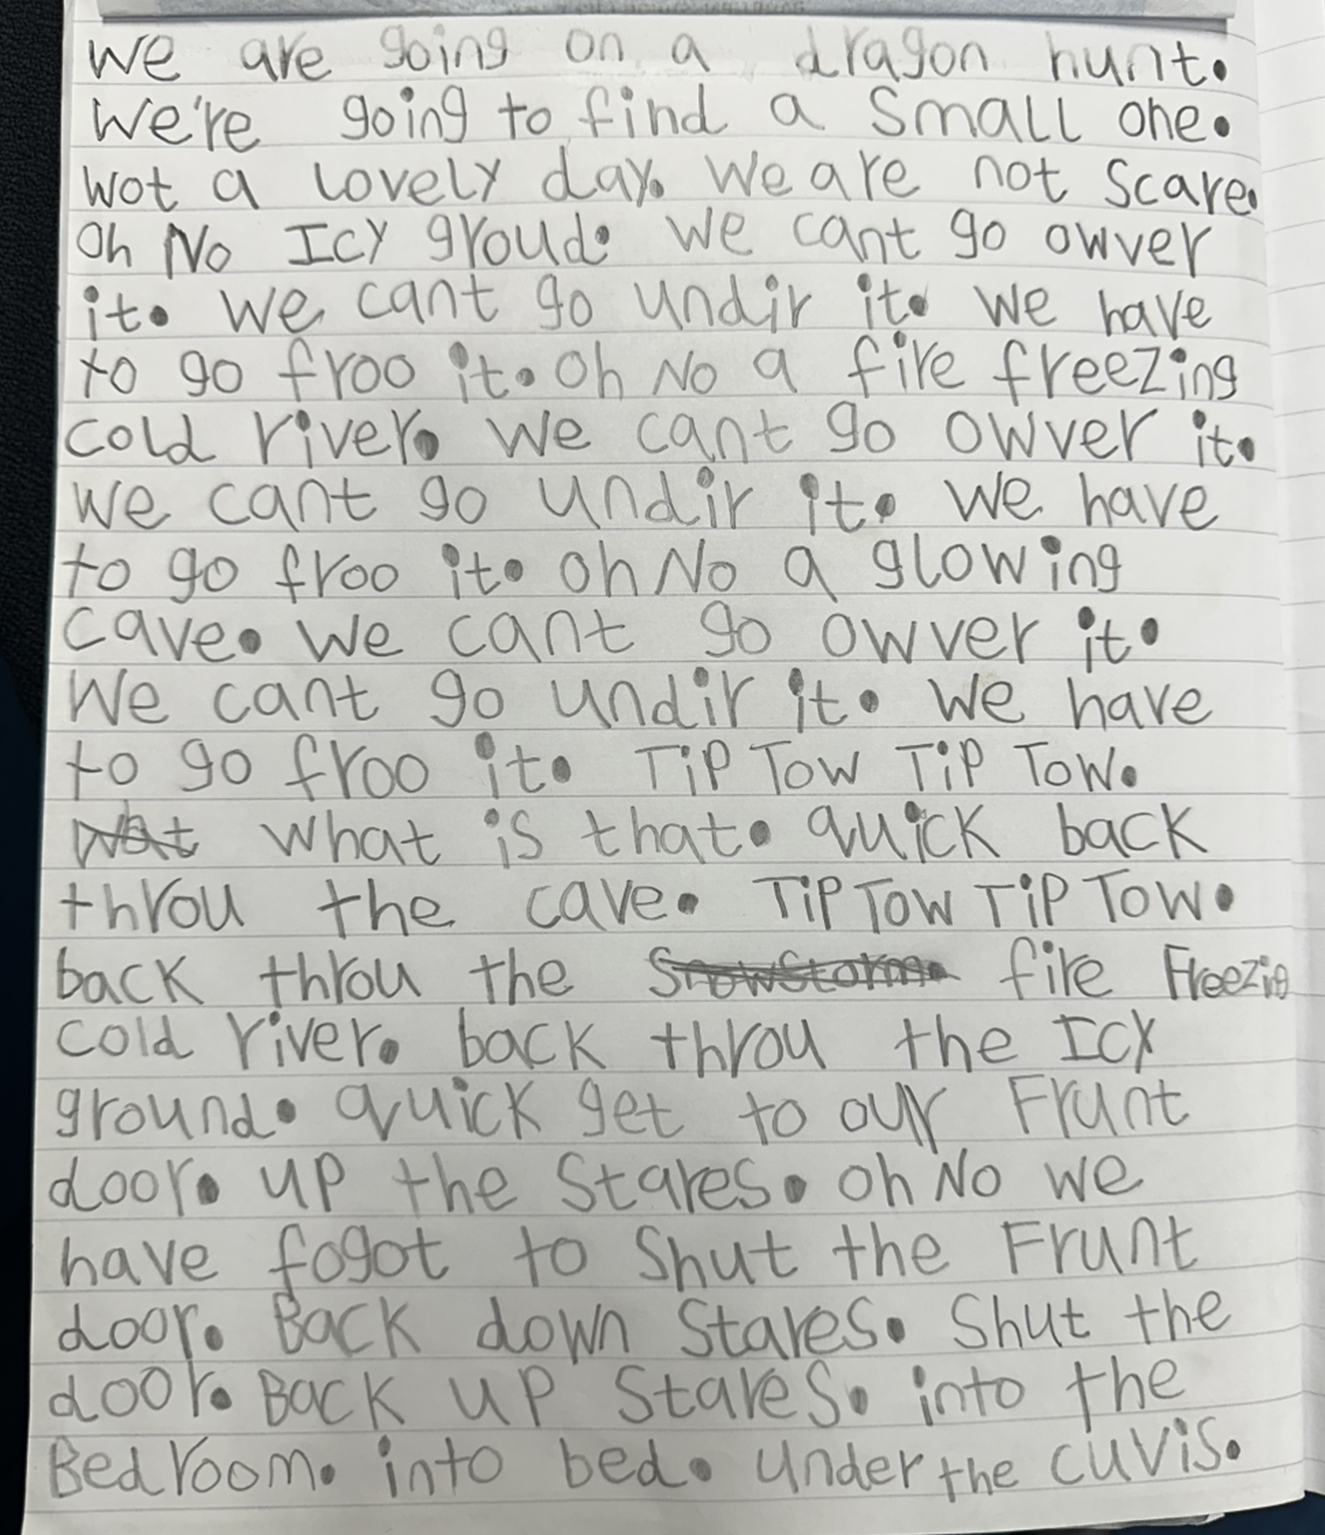 we are going on a dragon hunt.
we're going to find a small one.
wot a lovely day. we are not scare.
oh No Icy groud. we cant go owver
it. we cant go undir it. we have
to go froo it. oh No a fire freezing
cold river. we cant go owver it.
we cant go undir it. we have
to go froo it. oh No a glowing
cave. we cant go owver it.
We cant go undir it. we have
to go froo it. Tip Tow Tip Tow.
Wat what is that. quick back
throu the cave. Tip Tow Tip Tow.
back throu the Snowstorm. fire Freezing
cold river. back throu the Icy
ground. quick get to our Frunt
door. up the Stares. oh No we
have fogot to Shut the Frunt
door. Back down Stares. Shut the
door. Back up Stares. into the
Bedroom. into bed. under the cuvis.